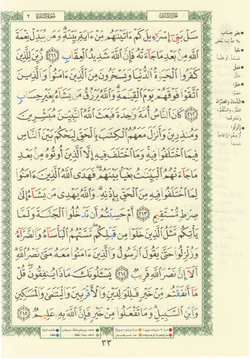 الجزء الثاني سورة البقرة ٢
سَلْ بَنِىٓ إِسْرَٰٓءِيلَ كَمْ ءَاتَيْنَٰهُم مِّنْ ءَايَةٍۭ بَيِّنَةٍ وَمَن يُبَدِّلْ نِعْمَةَ
ٱللَّهِ مِنۢ بَعْدِ مَا جَآءَتْهُ فَإِنَّ ٱللَّهَ شَدِيدُ ٱلْعِقَابِ ٢١١ زُيِّنَ لِلَّذِينَ
كَفَرُوا۟ ٱلْحَيَوٰةُ ٱلدُّنْيَا وَيَسْخَرُونَ مِنَ ٱلَّذِينَ ءَامَنُوا۟ وَٱلَّذِينَ
ٱتَّقَوْا۟ فَوْقَهُمْ يَوْمَ ٱلْقِيَٰمَةِ وَٱللَّهُ يَرْزُقُ مَن يَشَآءُ بِغَيْرِ حِسَابٍ
٢١٢ كَانَ ٱلنَّاسُ أُمَّةً وَٰحِدَةً فَبَعَثَ ٱللَّهُ ٱلنَّبِيِّۦنَ مُبَشِّرِينَ
وَمُنذِرِينَ وَأَنزَلَ مَعَهُمُ ٱلْكِتَٰبَ بِٱلْحَقِّ لِيَحْكُمَ بَيْنَ ٱلنَّاسِ
فِيمَا ٱخْتَلَفُوا۟ فِيهِ وَمَا ٱخْتَلَفَ فِيهِ إِلَّا ٱلَّذِينَ أُوتُوهُ مِنۢ بَعْدِ
مَا جَآءَتْهُمُ ٱلْبَيِّنَٰتُ بَغْيًۢا بَيْنَهُمْ فَهَدَى ٱللَّهُ ٱلَّذِينَ ءَامَنُوا۟
لِمَا ٱخْتَلَفُوا۟ فِيهِ مِنَ ٱلْحَقِّ بِإِذْنِهِۦ وَٱللَّهُ يَهْدِى مَن يَشَآءُ إِلَىٰ
صِرَٰطٍ مُّسْتَقِيمٍ ٢١٣ أَمْ حَسِبْتُمْ أَن تَدْخُلُوا۟ ٱلْجَنَّةَ وَلَمَّا
يَأْتِكُم مَّثَلُ ٱلَّذِينَ خَلَوْا۟ مِن قَبْلِكُم مَّسَّتْهُمُ ٱلْبَأْسَآءُ وَٱلضَّرَّآءُ
وَزُلْزِلُوا۟ حَتَّىٰ يَقُولَ ٱلرَّسُولُ وَٱلَّذِينَ ءَامَنُوا۟ مَعَهُۥ مَتَىٰ نَصْرُ ٱللَّهِ
أَلَآ إِنَّ نَصْرَ ٱللَّهِ قَرِيبٌ ٢١٤ يَسْـَٔلُونَكَ مَاذَا يُنفِقُونَ قُلْ
مَآ أَنفَقْتُم مِّنْ خَيْرٍ فَلِلْوَٰلِدَيْنِ وَٱلْأَقْرَبِينَ وَٱلْيَتَٰمَىٰ وَٱلْمَسَٰكِينِ
وَٱبْنِ ٱلسَّبِيلِ وَمَا تَفْعَلُوا۟ مِنْ خَيْرٍ فَإِنَّ ٱللَّهَ بِهِۦ عَلِيمٌ ٢١٥
٣٣